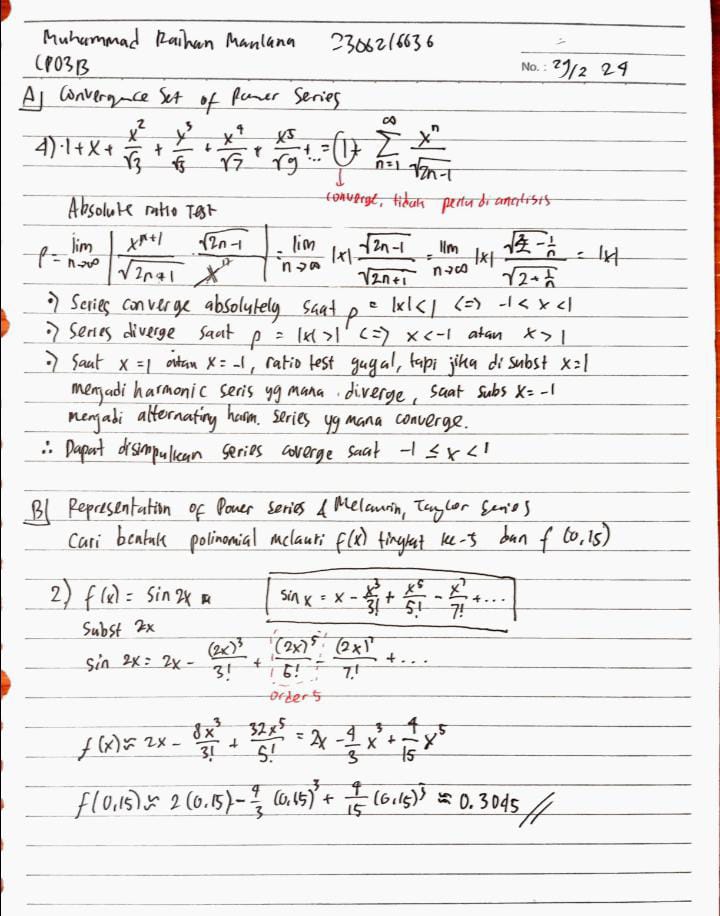 Muhammad Raihan Maulana 2306216636
CP03B
No. : 29/2 24
A] Convergence Set of Power Series
4) · 1 + x + x²/√3 + x³/√5 + x⁴/√7 + x⁵/√9 + ... = 1 + ∞ Σ n=1 xⁿ/√2n-1
converge, tidak perlu di analisis
Absolute ratio test
ρ = lim n→∞ | xⁿ⁺¹/√2n+1 · √2n-1/xⁿ | = lim n→∞ |x| √2n-1/√2n+1 = lim n→∞ |x| √2 - 1/n/√2 + 1/n = |x|
·) Series converge absolutely saat ρ = |x| < 1 <=> -1 < x < 1
·) Series diverge saat ρ = |x| > 1 <=> x < -1 atau x > 1
·) Saat x = 1 atau x = -1, ratio test gagal, tapi jika di subst x = 1
menjadi harmonic seris yg mana diverge, saat subs x = -1
menjadi alternating harm. series yg mana converge.
∴ Dapat disimpulkan series coverge saat -1 ≤ x < 1
B] Representation of Power series & Melaurin, Taylor Series
Cari bentuk polinomial mclauri f(x) tingkat ke-5 dan f (0,15)
2) f(x) = sin 2x
sin x = x - x³/3! + x⁵/5! - x⁷/7! + ...
Subst 2x
sin 2x = 2x - (2x)³/3! + (2x)⁵/5! - (2x)⁷/7! + ...
Order 5
f(x) ≈ 2x - 8x³/3! + 32x⁵/5! = 2x - 4/3 x³ + 4/15 x⁵
f(0,15) ≈ 2(0.15) - 4/3 (0,15)³ + 4/15 (0,15)⁵ ≈ 0.3045 //